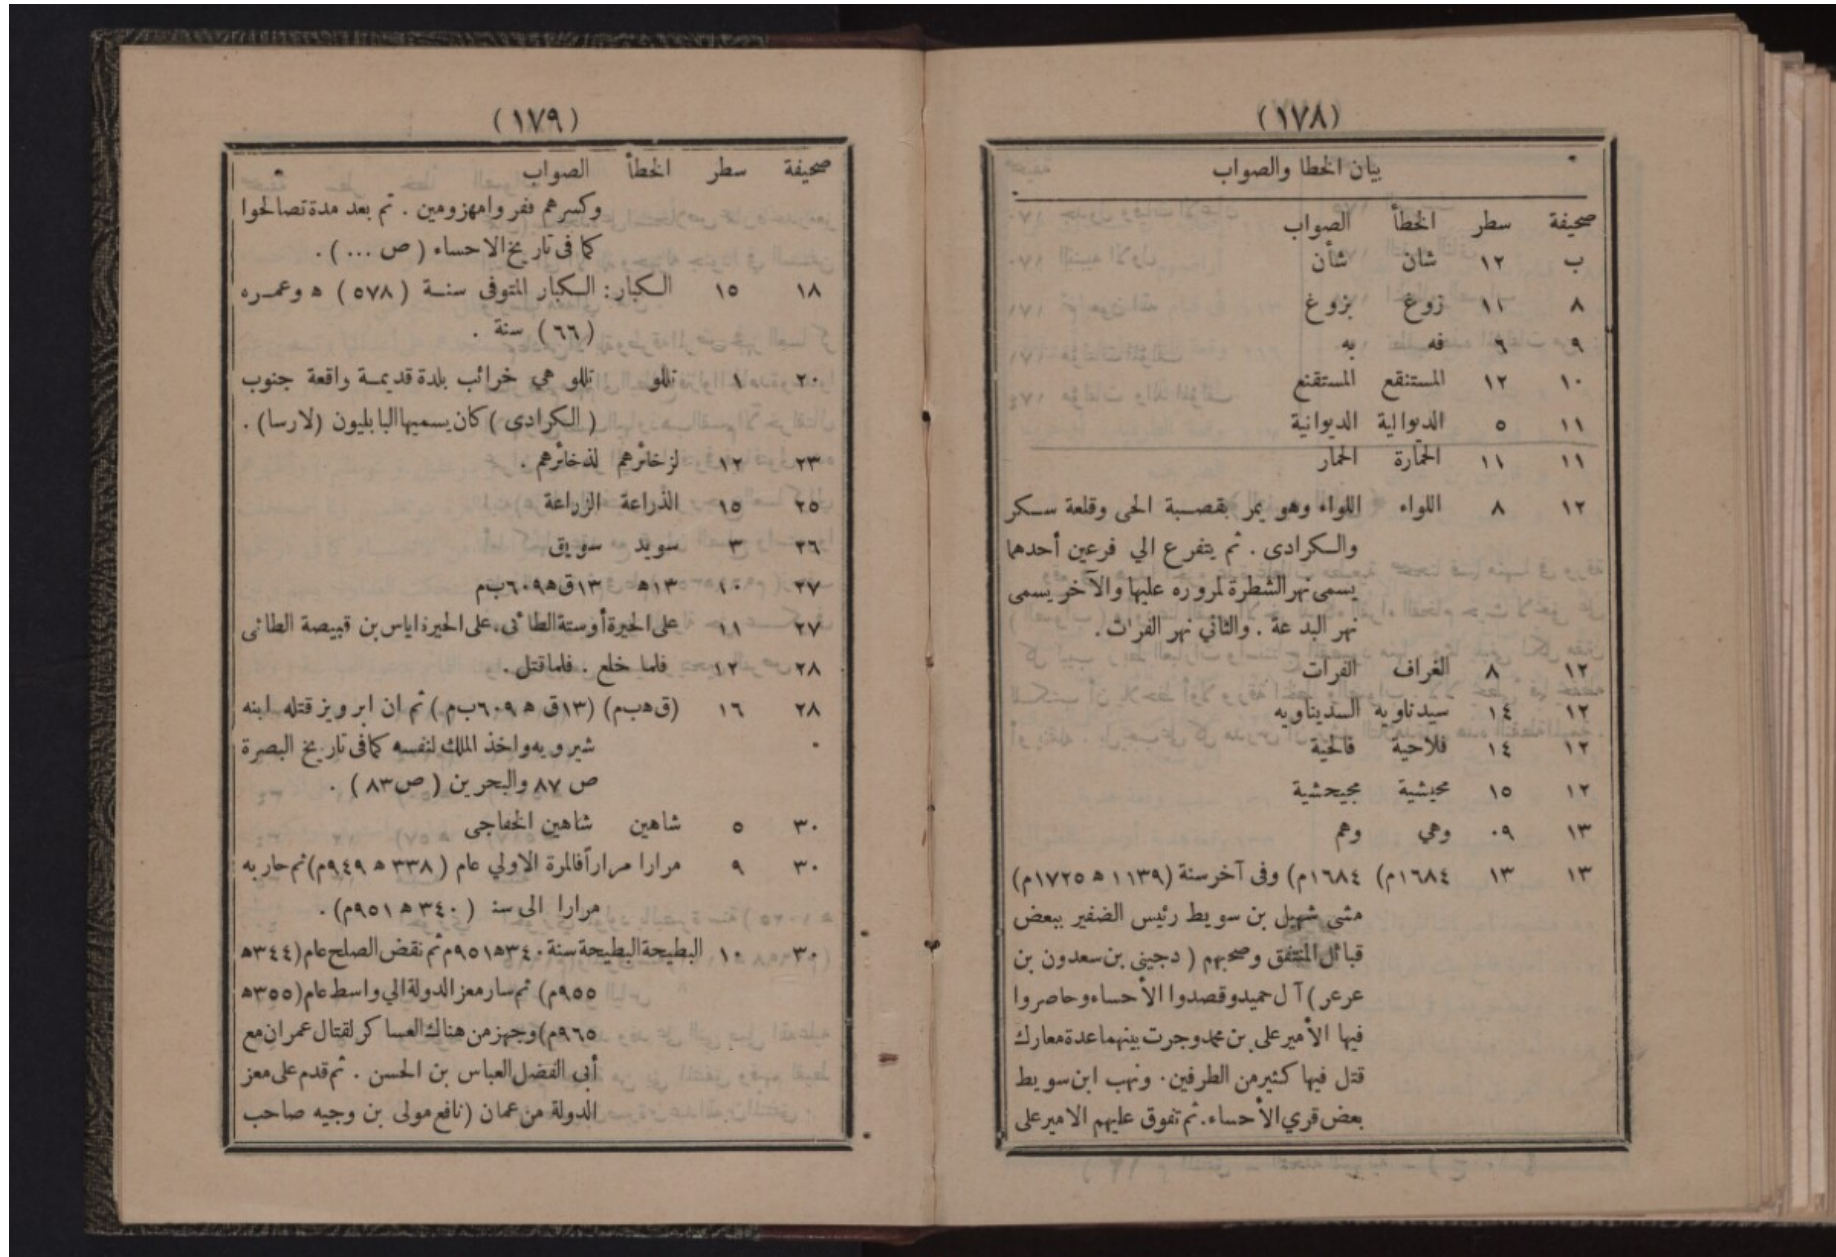 (١٧٨)
بيان الخطا والصواب
صحيفة سطر الخطأ الصواب
ب ١٢ شان شأن
٨ ١١ زوغ بزوغ
٩ ٩ فه به
١٠ ١٢ المستنقع المستقنع
١١ ٥ الديوالية الديوانية
١١ ١١ الحمارة الحمار
١٢ ٨ اللواء اللواء وهو يمر بقصبة الحى وقلعة سكر
والكرادى . ثم يتفرع الي فرعين أحدهما
يسمى نهر الشطرة لمروره عليها والآخر يسمى
نهر البدعة . والثاني نهر الفرات .
١٢ ٨ الغراف الفرات
١٢ ١٤ سيدناويه السديناويه
١٢ ١٤ فلاحية فالحية
١٢ ١٥ محيشية مجيحشية
١٣ ٠٩ وهي وهم
١٣ ١٣ ١٦٨٤م) ١٦٨٤م) وفى آخر سنة (١١٣٩ ه ١٧٢٥م)
مشى شهيل بن سويط رئيس الضفير ببعض
قبائل المنتفق وصحبهم ( دجيني بن سعدون بن
عرعر ) آل حميد وقصدوا الأحساء وحاصروا
فيها الأمير على بن محمد وجرت بينهما عدة معارك
قتل فيها كثير من الطرفين . ونهب ابن سويط
بعض قري الأحساء. ثم تفوق عليهم الامير على
(١٧٩)
صحيفة سطر الخطأ الصواب
وكسرهم ففروا مهزومين . ثم بعد مدة تصالحوا
كما فى تاريخ الاحساء ( ص ... ) .
١٨ ١٥ الكبار : الكبار المتوفى سنة ( ٥٧٨ ) ه وعمره
( ٦٦ ) سنة .
٢٠ ١ تللو تللو هي خرائب بلدة قديمة واقعة جنوب
( الكرادى ) كان يسميها البابليون (لارسا) .
٢٣ ١٢ لزخائرهم لذخائرهم .
٢٥ ١٥ الذراعة الزراعة
٢٦ ٣ سويد سويق
٢٧ ١٠ ١٣ه ١٣ق ه ٦٠٩ب م
٢٧ ١١ على الحيرة أوستة الطائى . على الحيرة اياس بن قبيصة الطائى
٢٨ ١٢ فلما خلع . فلما قتل .
٢٨ ١٦ (ق ه ب م) (١٣ق ه ٦٠٩ ب م ) ثم ان ابرويز قتله ابنه
شيرويه واخذ الملك لنفسه كما فى تاريخ البصرة
ص ٨٧ والبحرين ( ص ٨٣ ) .
٣٠ ٥ شاهين شاهين الخفاجى
٣٠ ٩ مرارا مراراً فالمرة الاولي عام ( ٣٣٨ ه ٩٤٩م) ثم حاربه
مرارا الى سنة ( ٣٤٠ ه ٩٥١م) .
٣٠ ١٠ البطيحة البطيحة سنة ٣٤٠ه ٩٥١م ثم نقض الصلح عام (٣٤٤ه
٩٥٥م) . ثم سار معز الدولة الي واسط عام (٣٥٥ه
٩٦٥م) وجهز من هناك العساكر لقتال عمران مع
أبى الفضل العباس بن الحسن . ثم قدم على معز
الدولة من عمان (نافع مولى بن وجيه صاحب